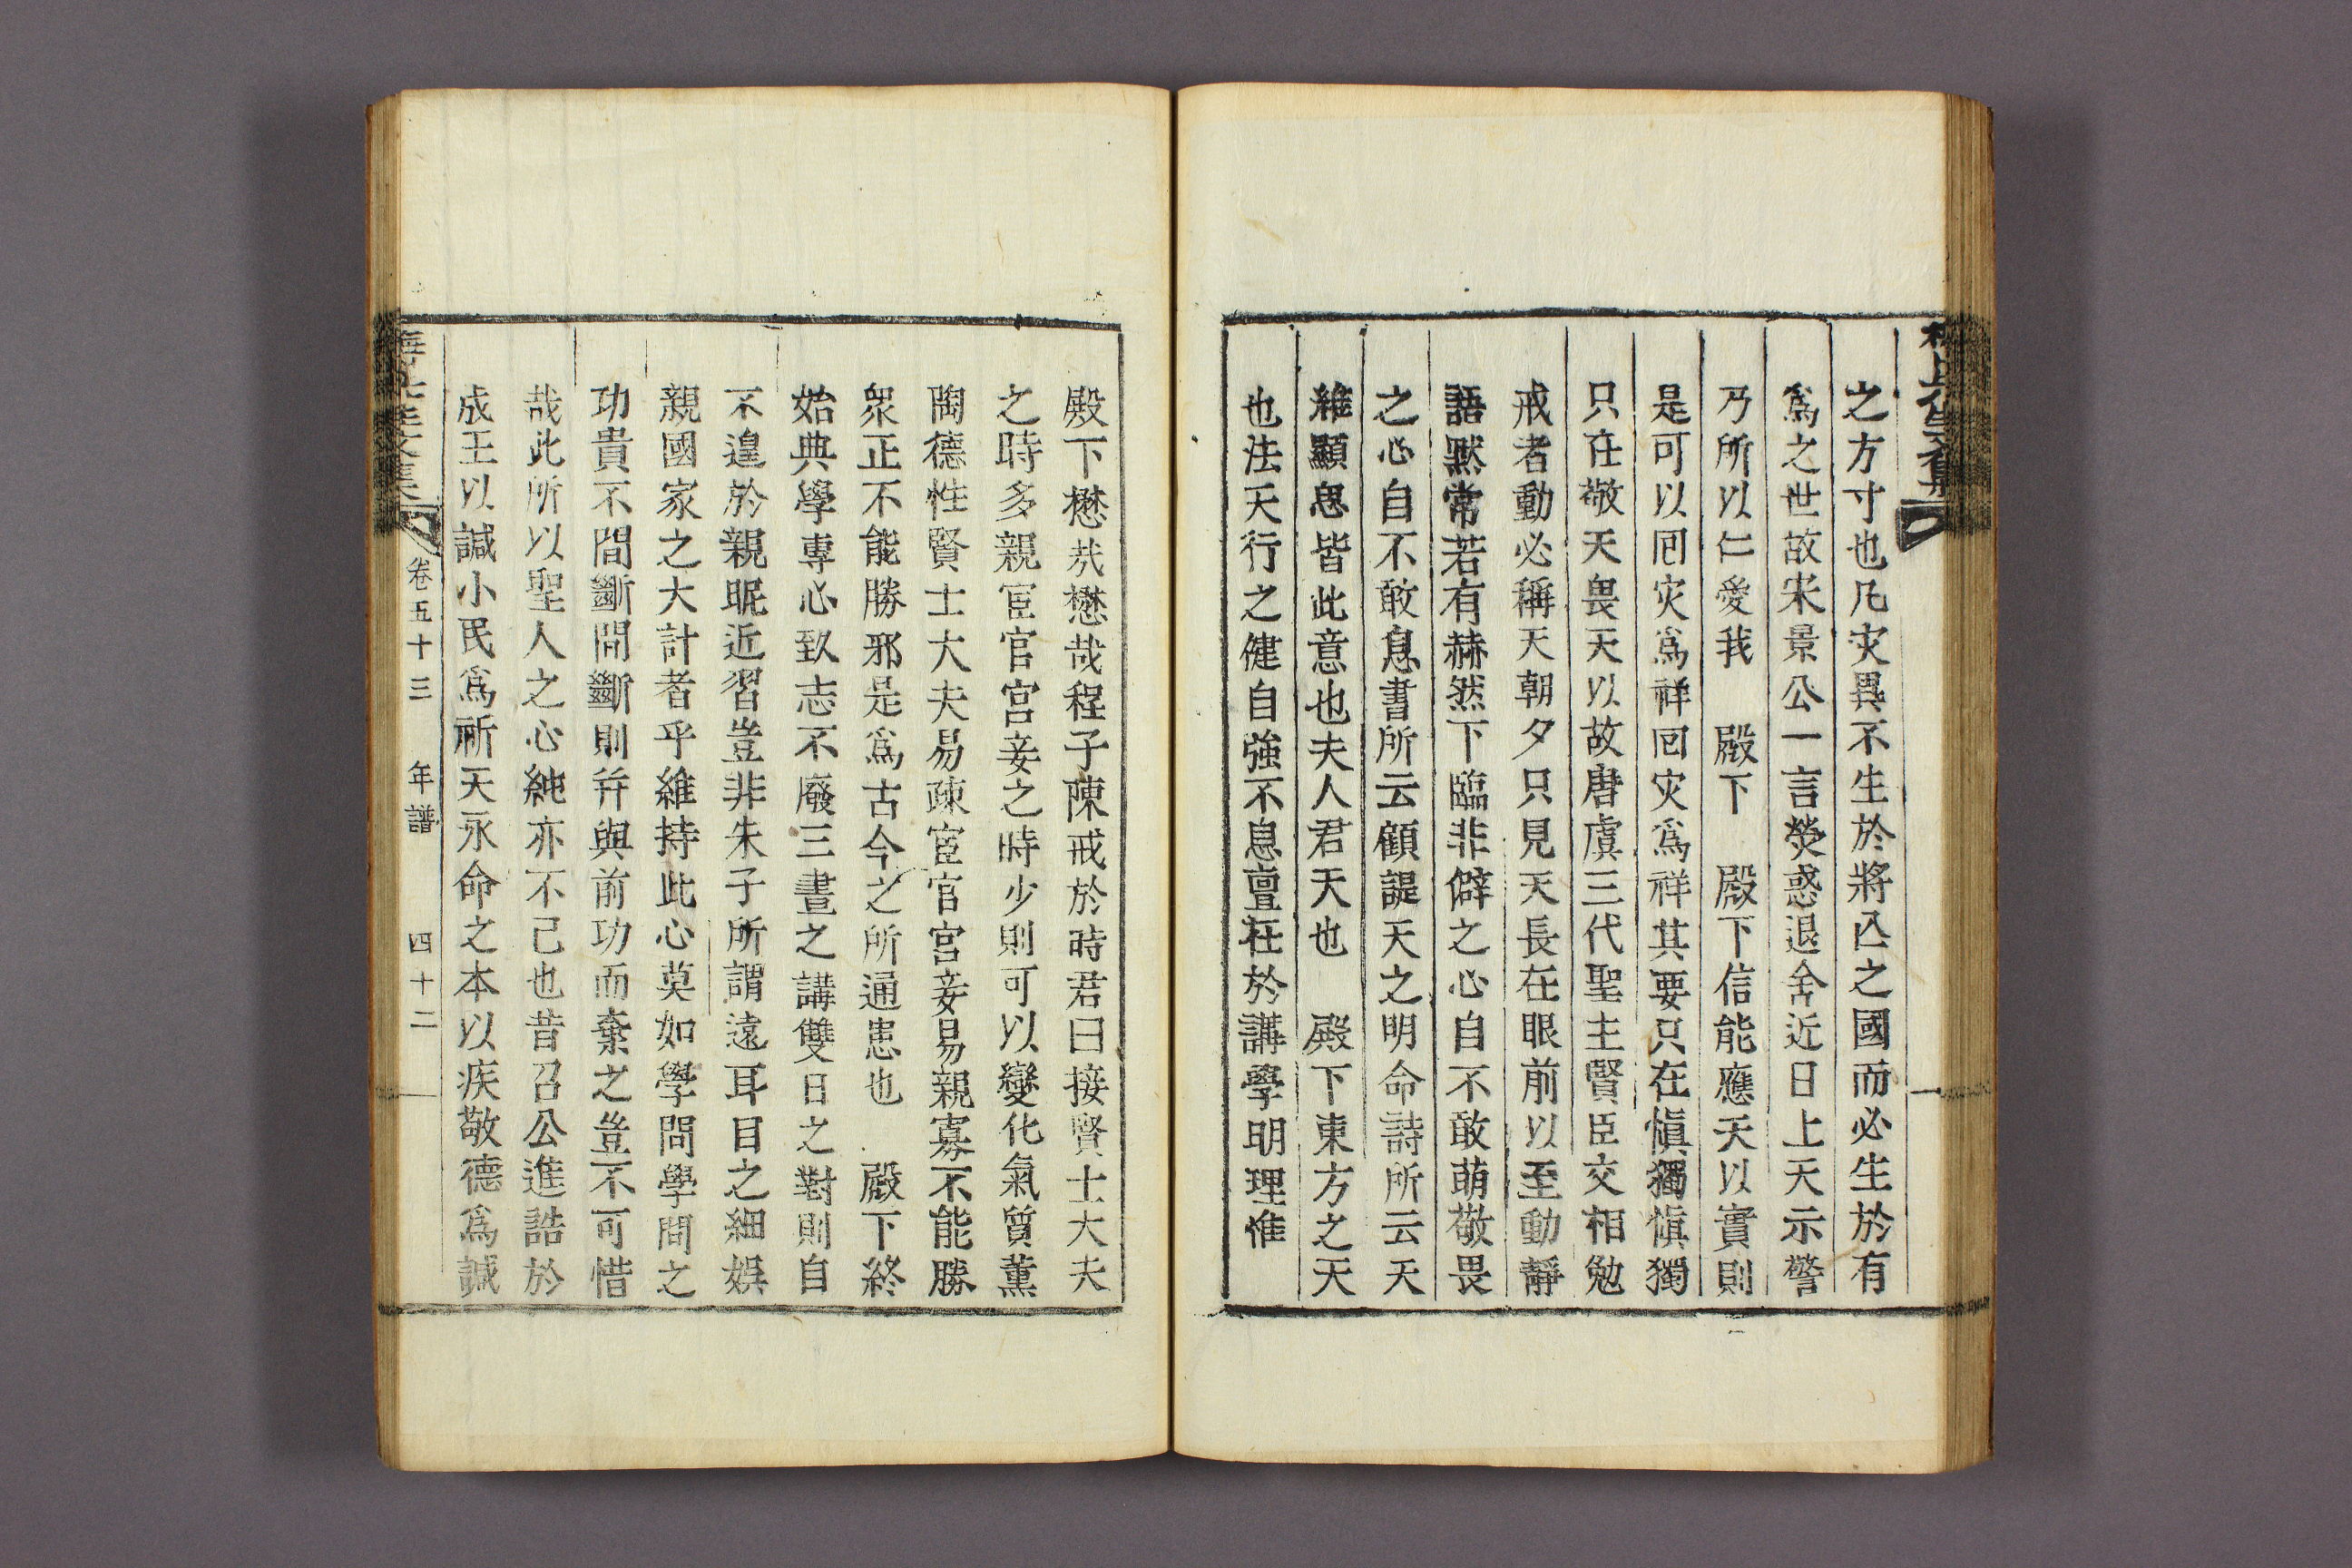 之方寸也凡灾異不生於將亾之國而必生於有
爲之世故宋景公一言熒惑退舍近日上天示警
乃所以仁愛我 殿下 殿下信能應天以實則
是可以囘灾爲祥囘灾爲祥其要只在愼獨愼獨
只在敬天畏天以故唐虞三代聖主賢臣交相勉
戒者動必稱天朝夕只見天長在眼前以至動靜
語默常若有赫然下臨非僻之心自不敢萌敬畏
之心自不敢息書所云顧諟天之明命詩所云天
維顯思皆此意也夫人君天也 殿下東方之天
也法天行之健自強不息亶在於講學明理惟
殿下懋哉懋哉程子陳戒於時君曰接賢士大夫
之時多親宦官宮妾之時少則可以變化氣質薰
陶德性賢士大夫易疎宦官宮妾易親寡不能勝
衆正不能勝邪是爲古今之所通患也 殿下終
始典學專心致志不廢三晝之講雙日之對則自
不遑於親昵近習豈非朱子所謂遠耳目之細娛
親國家之大計者乎維持此心莫如學問學問之
功貴不間斷間斷則幷與前功而棄之豈不可惜
哉此所以聖人之心純亦不已也昔召公進誥於
成王以諴小民爲祈天永命之本以疾敬德爲諴
卷五十三 年譜 四十二